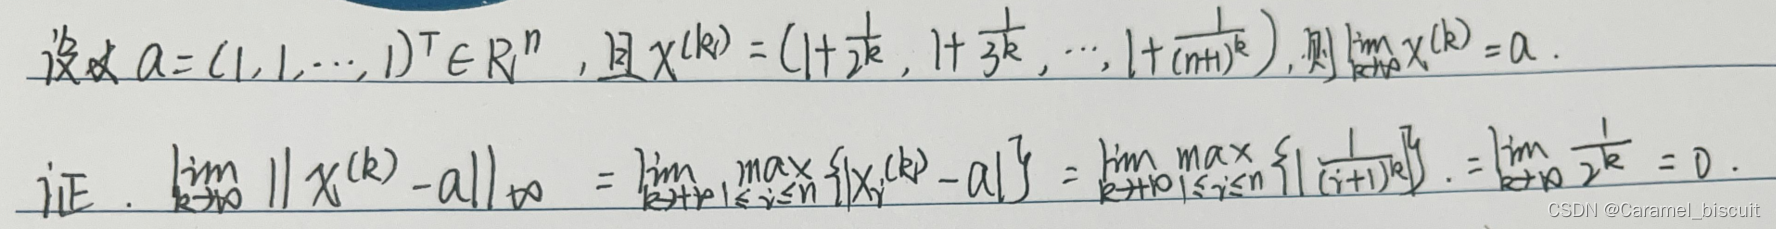 设 a = (1, 1, ⋯, 1)ᵀ ∈ Rⁿ , 且 x⁽ᵏ⁾ = (1 + 1/2ᵏ , 1 + 1/3ᵏ , ⋯, 1 + 1/(n+1)ᵏ ), 则 lim_{k→∞} x⁽ᵏ⁾ = a .
证 . lim_{k→∞} || x⁽ᵏ⁾ - a ||_∞ = lim_{k→+∞} max_{1≤i≤n} {|xᵢ⁽ᵏ⁾ - a|} = lim_{k→+∞} max_{1≤i≤n} {| 1/(i+1)ᵏ |} . = lim_{k→∞} 1/2ᵏ = 0 .
CSDN @Caramel_biscuit